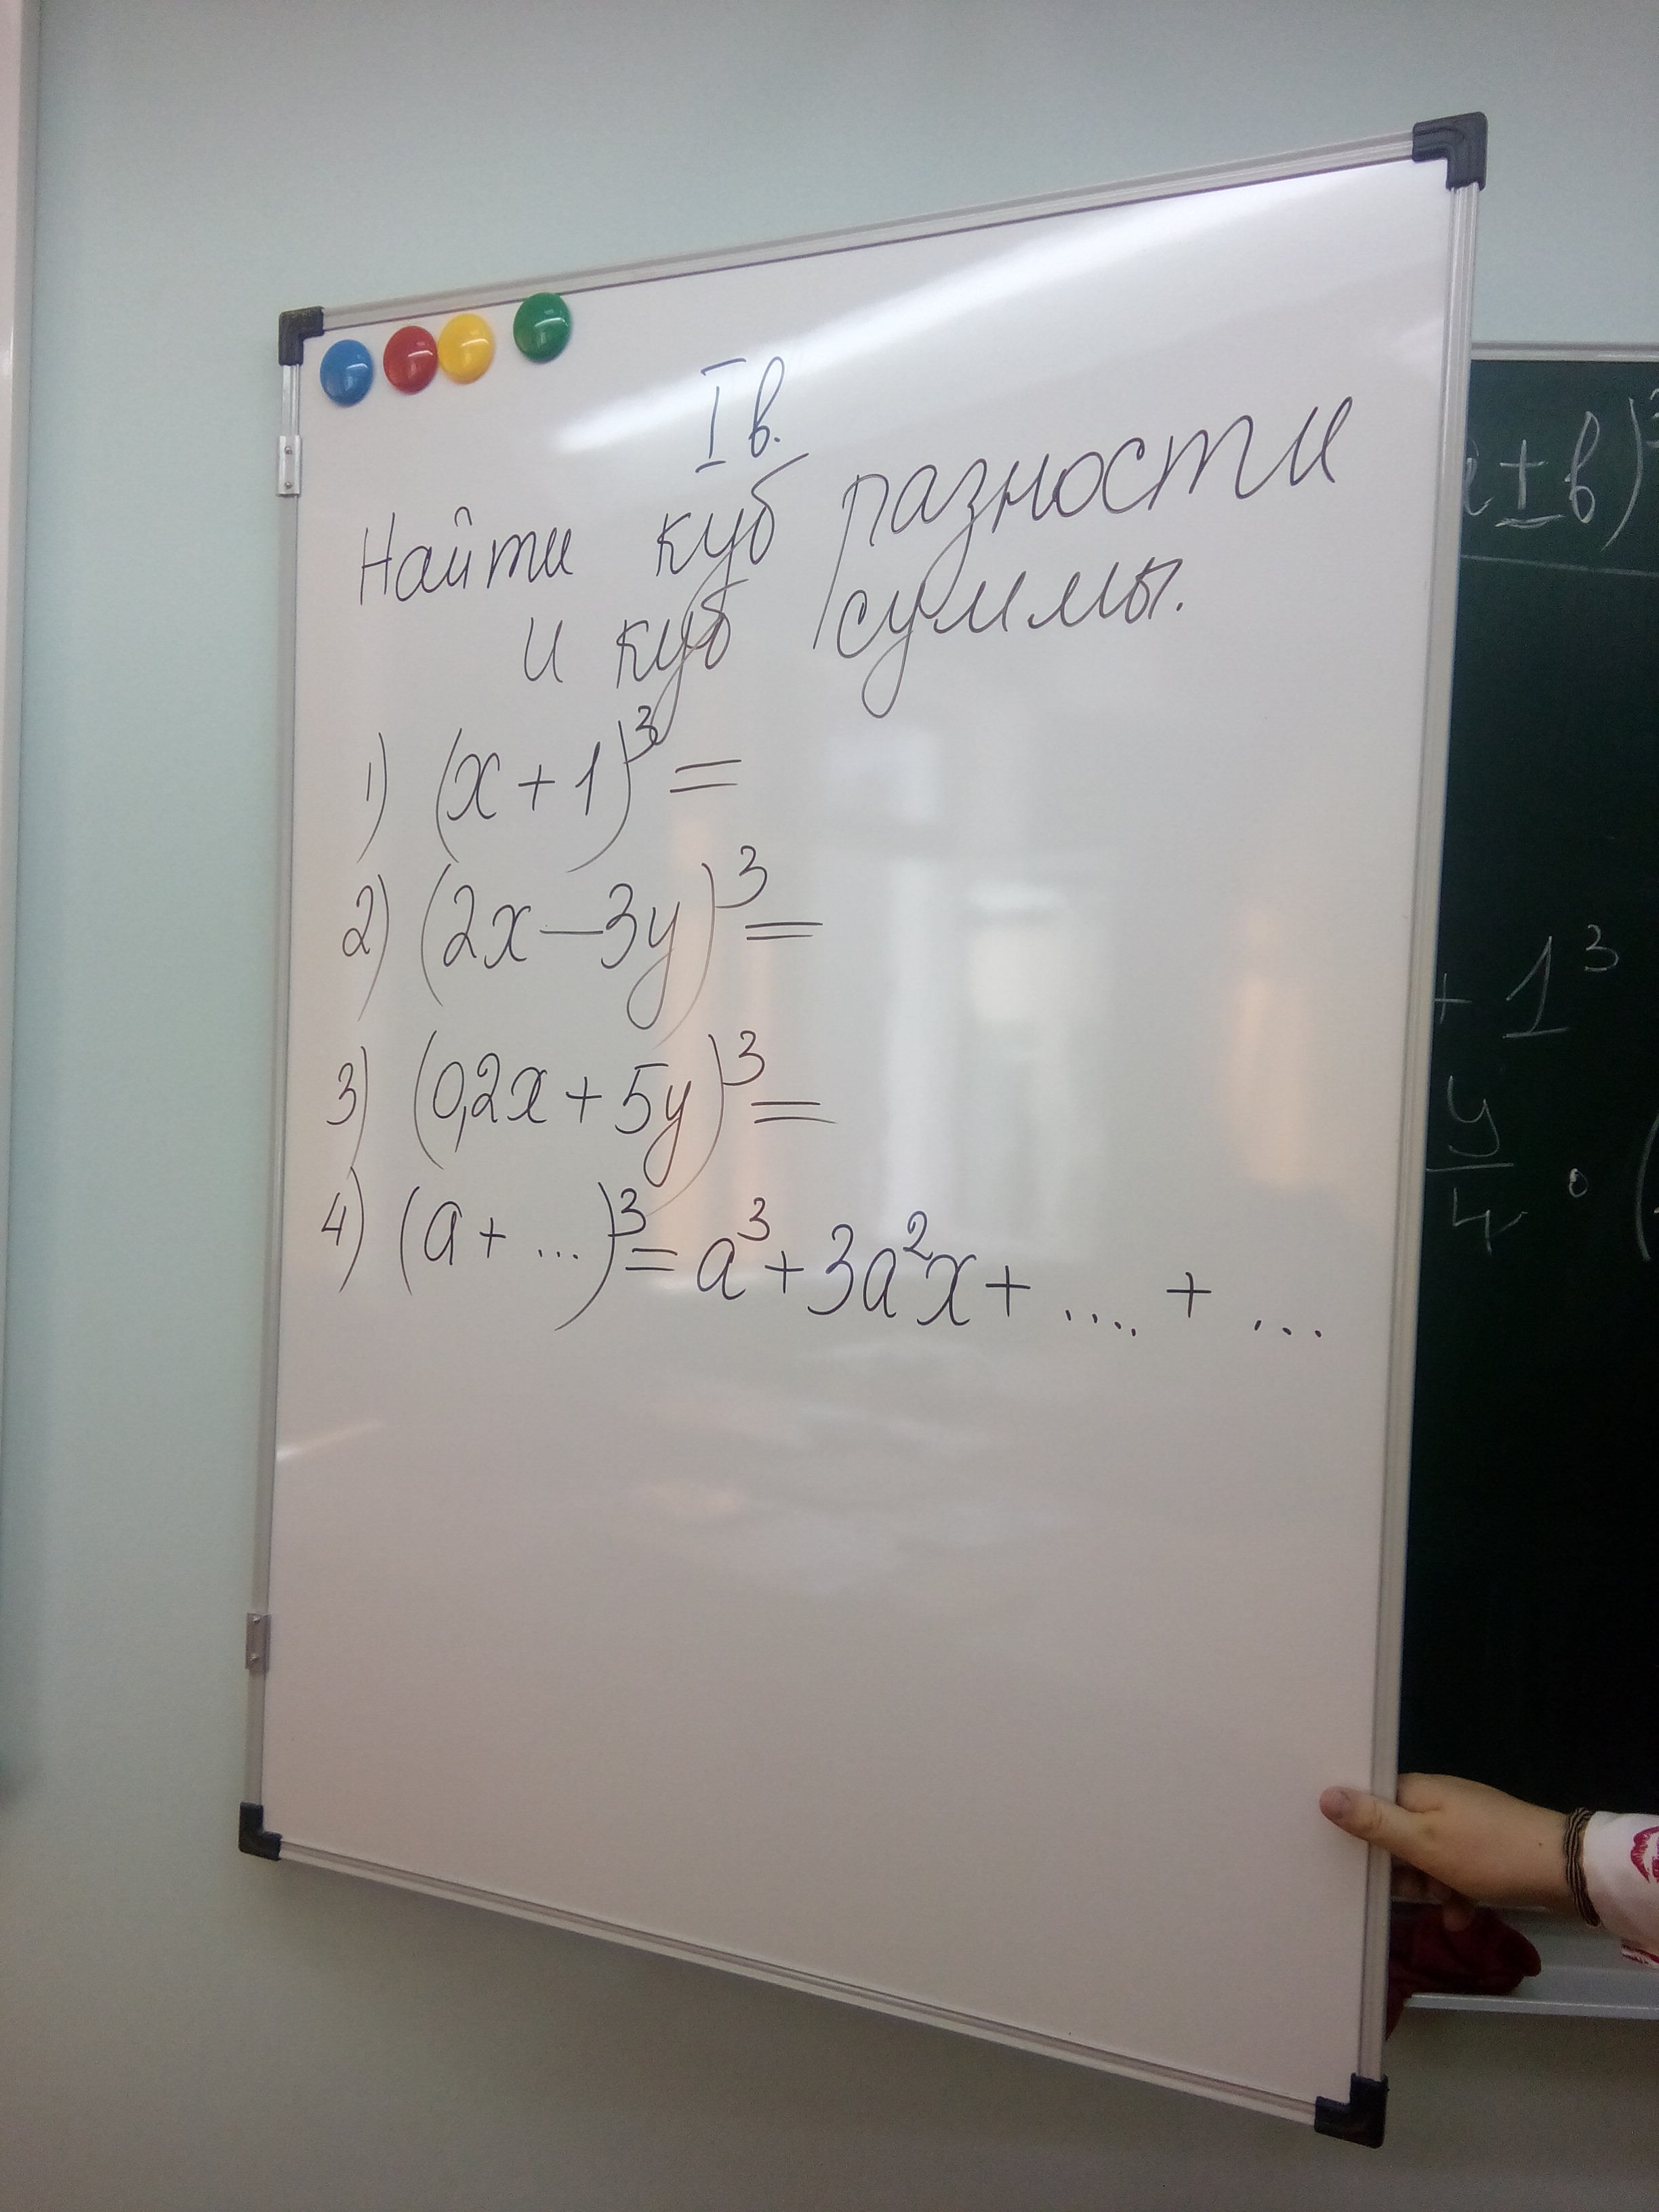 I в.
Найти куб разности
и куб суммы.
1) (x + 1)³ =
2) (2x − 3y)³ =
3) (0,2x + 5y)³ =
4) (a + ...)³ = a³ + 3a²x + .... + ...
± в)
+ 1³
y/4 · (